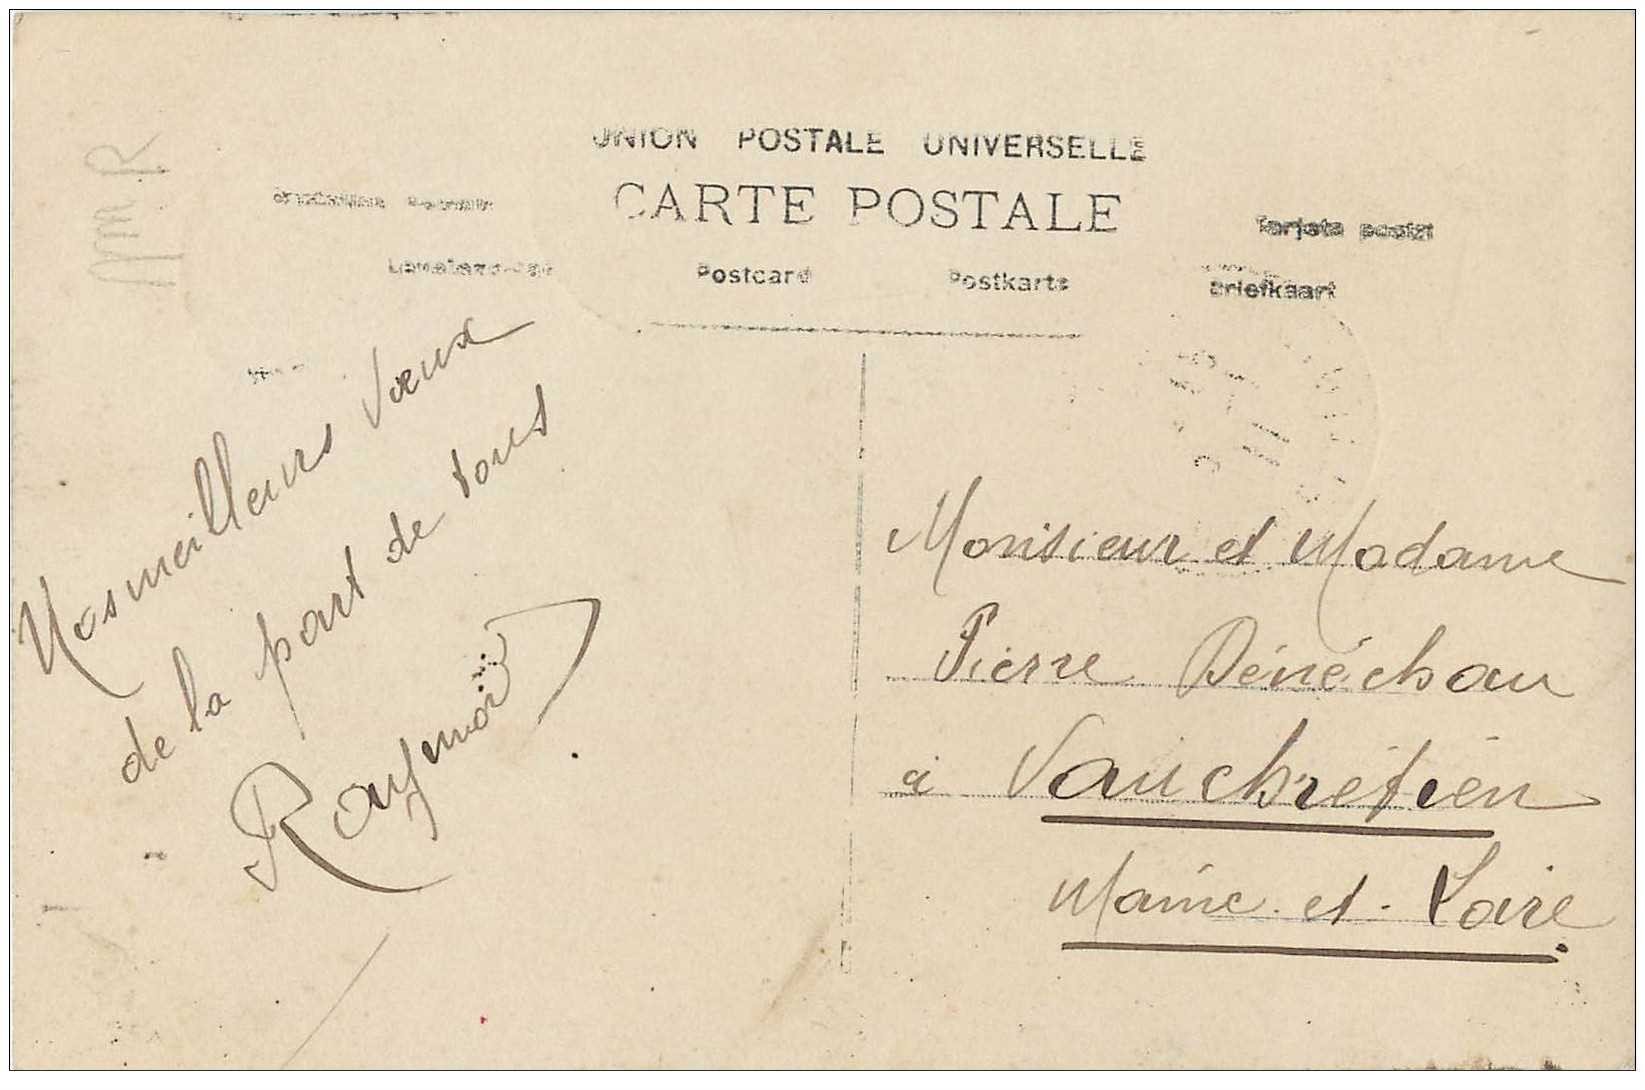 UNION POSTALE UNIVERSELLE
CARTE POSTALE
Tarjeta postal
Postcard Postkarte Briefkaart
Nos meilleurs vœux
de la part de tous
Raymond
Monsieur et Madame
Pierre Bénéchau
à Vauchrétien
Maine-et-Loire